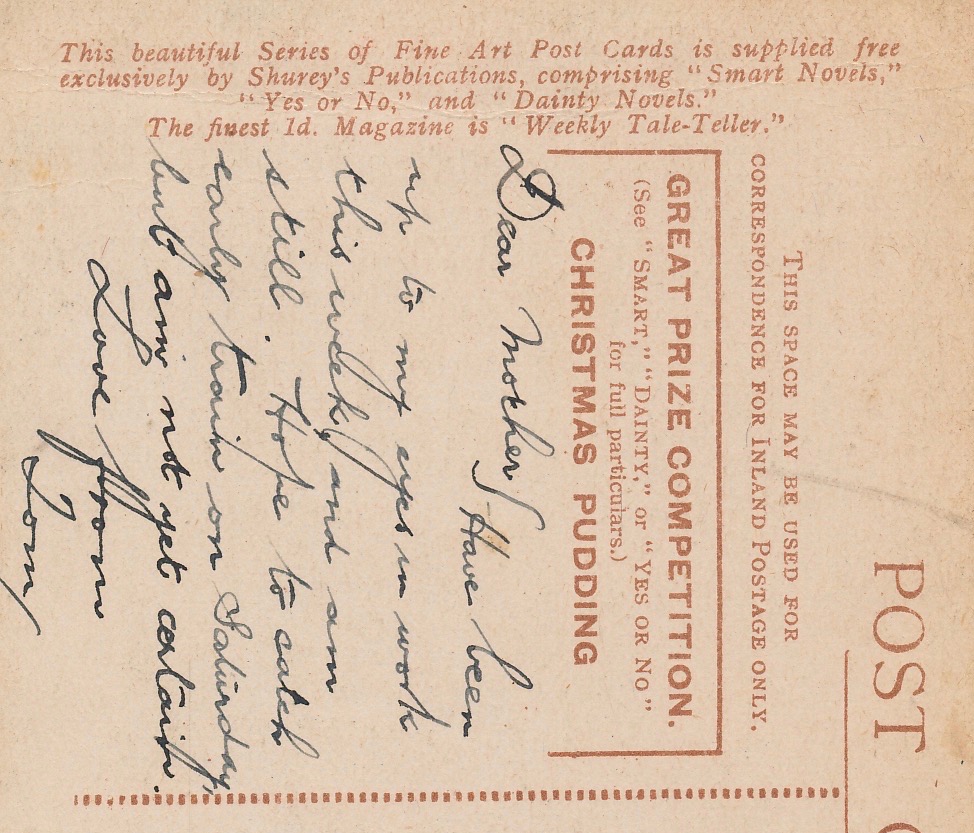 This beautiful Series of Fine Art Post Cards is supplied free
exclusively by Shurey's Publications, comprising "Smart Novels,"
"Yes or No," and "Dainty Novels."
The finest 1d. Magazine is "Weekly Tale-Teller."
POST C
THIS SPACE MAY BE USED FOR
CORRESPONDENCE FOR INLAND POSTAGE ONLY.
GREAT PRIZE COMPETITION.
(See "SMART," "DAINTY," or "YES OR NO"
for full particulars.)
CHRISTMAS PUDDING
Dear Mother Have been
up to my eyes in work
this week, and am
still. Hope to catch
early train on Saturday,
but am not yet certain.
Love from
Tom